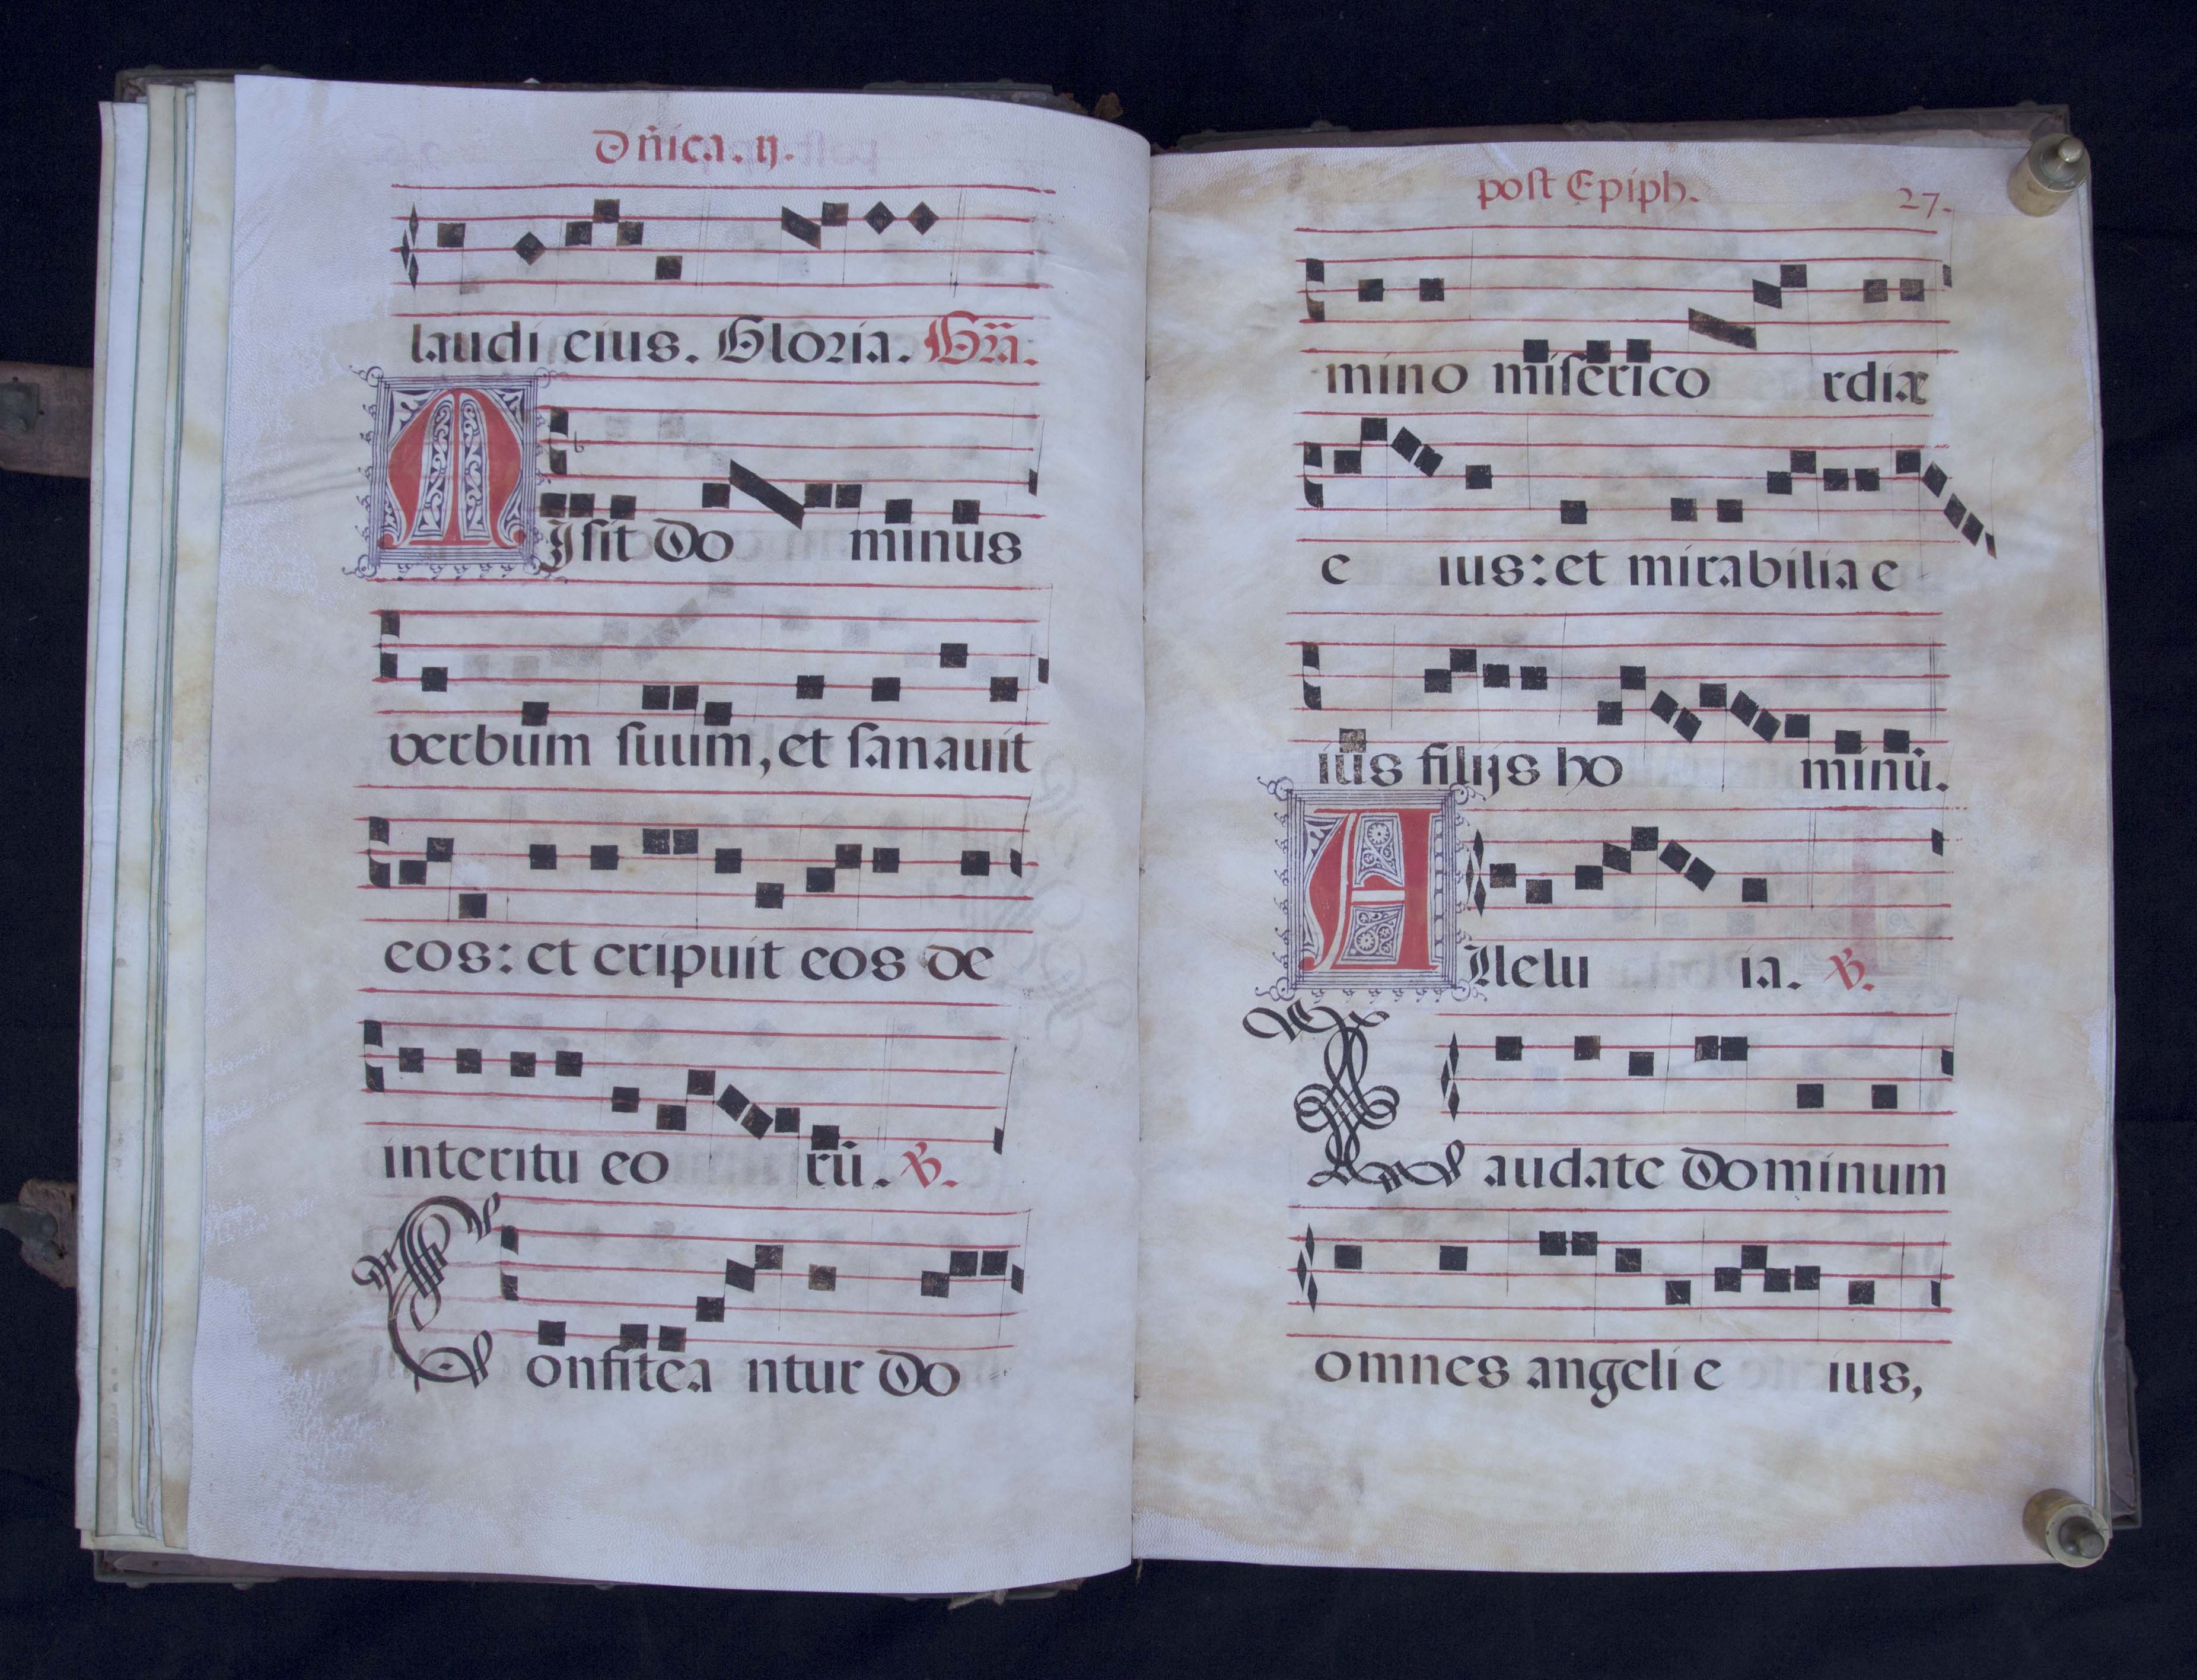 Dñica. ij.
laudi eius. Gloria. Gra.
MIsit Do minus
verbum suum, et sanauit
eos: et eripuit eos de
interitu eo rū. ℣.
Confitea ntur Do
post Epiph. 27.
mino miserico rdiæ
e ius: et mirabilia e
ius filijs ho minū.
Allelu ia. ℣.
Laudate Dominum
omnes angeli e ius,